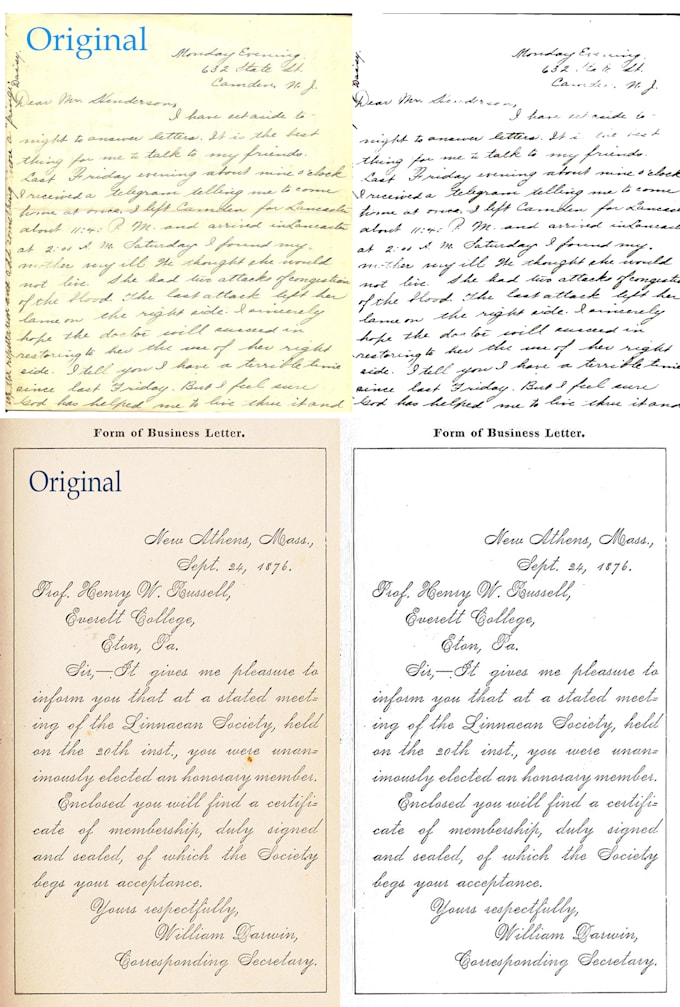 Original
Monday Evening,
632 State St.
Camden, N. J.
Dear Mr. Henderson,
I have set aside to-
night to answer letters. It is the best
thing for me to talk to my friends.
Last Friday evening about nine o'clock
I received a telegram telling me to come
home at once. I left Camden for Lancaster
about 11:4 P. M. and arrived in Lancaster
at 2:00 A. M. Saturday I found my
mother very ill We thought she would
not live. She had two attacks of congestion
of the blood The last attack left her
lame on the right side. I sincerely
hope the doctor will succeed in
restoring to her the use of her right
side. I tell you I have a terrible time
since last Friday. But I feel sure
God has helped me to live thru it and
Daisy.
Monday Evening,
632 State St.
Camden, N. J.
Dear Mr. Henderson,
I have set aside to-
night to answer letters. It is the best
thing for me to talk to my friends.
Last Friday evening about nine o'clock
I received a telegram telling me to come
home at once. I left Camden for Lancas
about 11:4 P. M. and arrived in Lancas
at 2:00 A. M. Saturday I found my
mother very ill We thought she would
not live. She had two attacks of congestio
of the blood The last attack left her
lame on the right side. I sincerely
hope the doctor will succeed in
restoring to her the use of her right
side. I tell you I have a terrible time
since last Friday. But I feel sure
God has helped me to live thru it and
Form of Business Letter.
Original
New Athens, Mass.,
Sept. 24, 1876.
Prof. Henry W. Russell,
Everett College,
Eton, Pa.
Sir,—It gives me pleasure to
inform you that at a stated meet=
ing of the Linnaean Society, held
on the 20th inst., you were unan=
imously elected an honorary member.
Enclosed you will find a certifi=
cate of membership, duly signed
and sealed, of which the Society
begs your acceptance.
Yours respectfully,
William Darwin,
Corresponding Secretary.
Form of Business Letter.
New Athens, Mass.,
Sept. 24, 1876.
Prof. Henry W. Russell,
Everett College,
Eton, Pa.
Sir,—It gives me pleasure to
inform you that at a stated meet=
ing of the Linnaean Society, held
on the 20th inst., you were unan=
imously elected an honorary member.
Enclosed you will find a certifi=
cate of membership, duly signed
and sealed, of which the Society
begs your acceptance.
Yours respectfully,
William Darwin,
Corresponding Secretary.